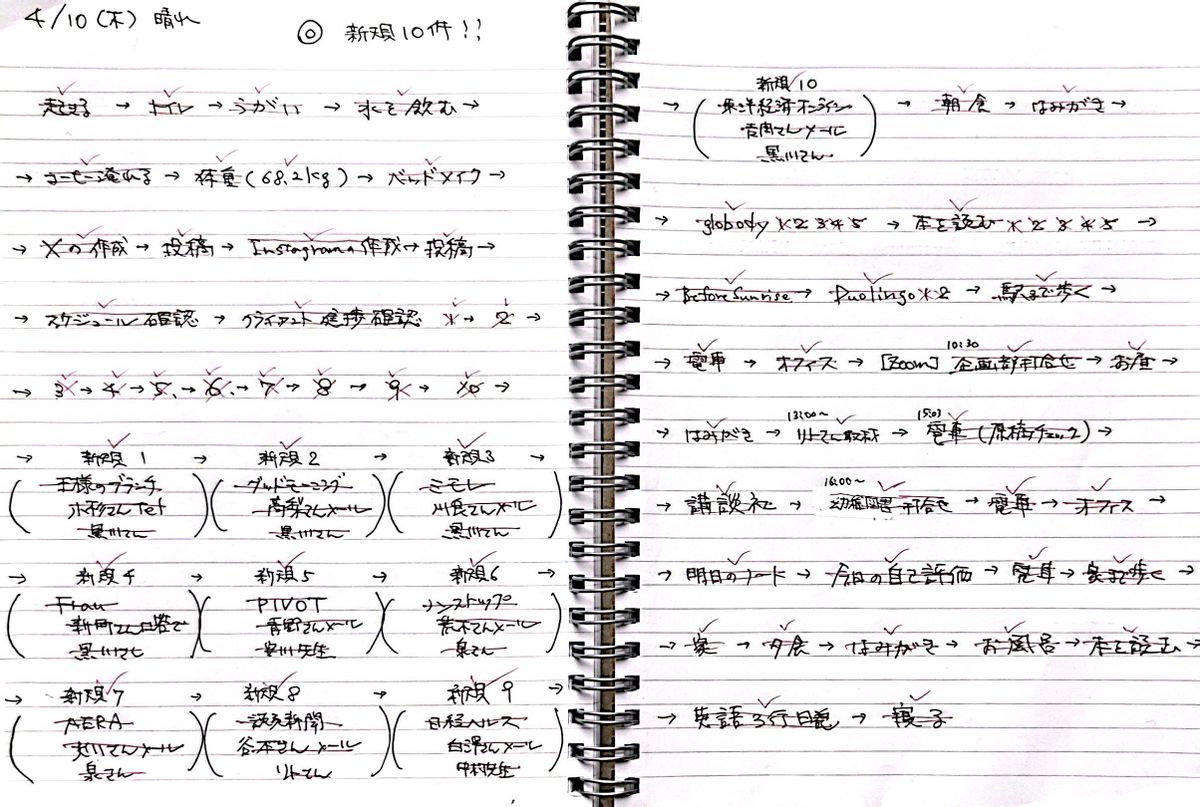 4/10(木) 晴れ
◎ 新規10件!!
起きる → トイレ → うがい → 水を飲む →
→ コーヒー淹れる → 体重(68.2kg) → ベッドメイク →
→ Xの作成 → 投稿 → Instagramの作成 → 投稿 →
→ スケジュール確認 → クライアント進捗確認 1 → 2 →
→ 3 → 4 → 5 → 6 → 7 → 8 → 9 → 10 →
→ 新規1 → 新規2 → 新規3 →
(王様のブランチ (グッドモーニング (ミモレ
小杉さんTel) 高梨さんメール) 川良さんメール)
黒川さん 黒川さん 黒川さん
→ 新規4 → 新規5 → 新規6 →
(Frau (PIVOT (ノンストップ
黒川さん) 青野さんメール) 荒木さんメール)
安川先生 泉さん
→ 新規7 → 新規8 → 新規9
(AERA (読売新聞 (日経ヘルス
さんメール) 谷本さんメール) 白澤さんメール)
泉さん リトさん 中村先生
新規10
→ (東洋経済オンライン → 朝食 → はみがき →
さんメール
黒川さん)
→ globody 1 2 3 4 5 → 本を読む 1 2 3 4 5 →
→ Before Sunrise → Duolingo 1 2 → 駅まで歩く →
10:30
→ 電車 → オフィス → [Zoom] 企画部打合せ → お昼 →
13:00~ 15:03
→ はみがき → リトさん取材 → 電車(原稿チェック) →
16:00~
→ 講談社 → 幼稚園図書打合せ → 電車 → オフィス →
→ 明日のノート → 今日の自己評価 → 電車 → 家まで歩く →
→ 家 → 夕食 → はみがき → お風呂 → 本を読む →
→ 英語3行日記 → 寝る